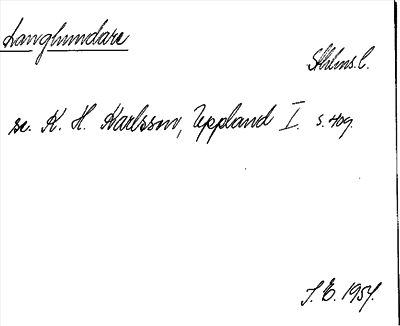 Langhundare
Sthlms l.
se. K. H. Karlsson, Uppland I. s. 409.
J. E. 1954.